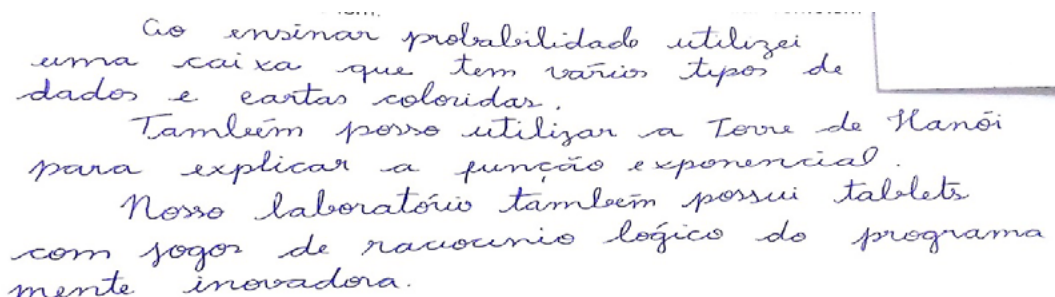 Ao ensinar probabilidade utilizei
uma caixa que tem vários tipos de
dados e cartas coloridas.
Também posso utilizar a Torre de Hanói
para explicar a função exponencial.
Nosso laboratório também possui tablets
com jogos de raciocinio lógico do programa
mente inovadora.